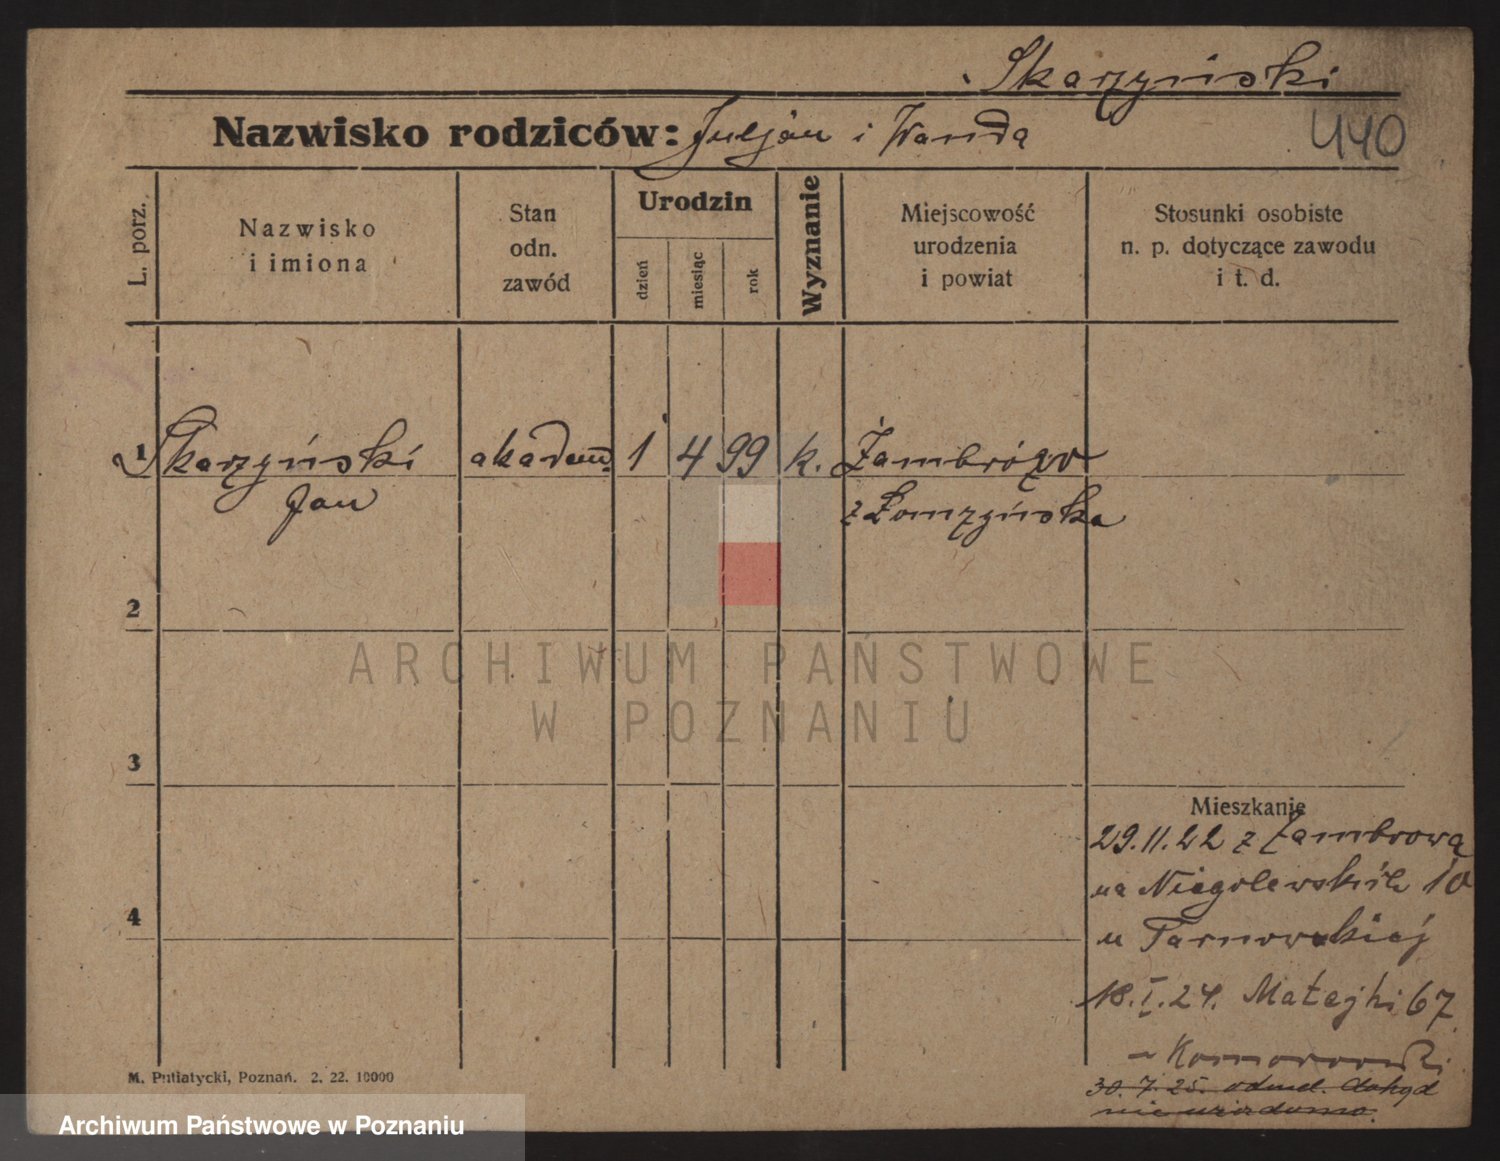 Skarzyński
Nazwisko rodziców: Juljan i Wanda
440
L. porz.
Nazwisko
i imiona
Stan
odn.
zawód
Urodzin
dzień
miesiąc
rok
Wyznanie
Miejscowość
urodzenia
i powiat
Stosunki osobiste
n. p. dotyczące zawodu
i t. d.
1 Skarzyński akadem. 1 4 99 k. Zambrów
Jan z Łomzyńska
2
ARCHIWUM PAŃSTWOWE
W POZNANIU
3
Mieszkanie
29.11.22 z Zambrowa
na Niegolewskich 10
4
u Tarnowskiej
18.I.24. Matejki 67
Komorowski
30.7.25. odmel. dokąd
nie wiadomo.
M. Putiatycki, Poznań. 2. 22. 10000
Archiwum Państwowe w Poznaniu